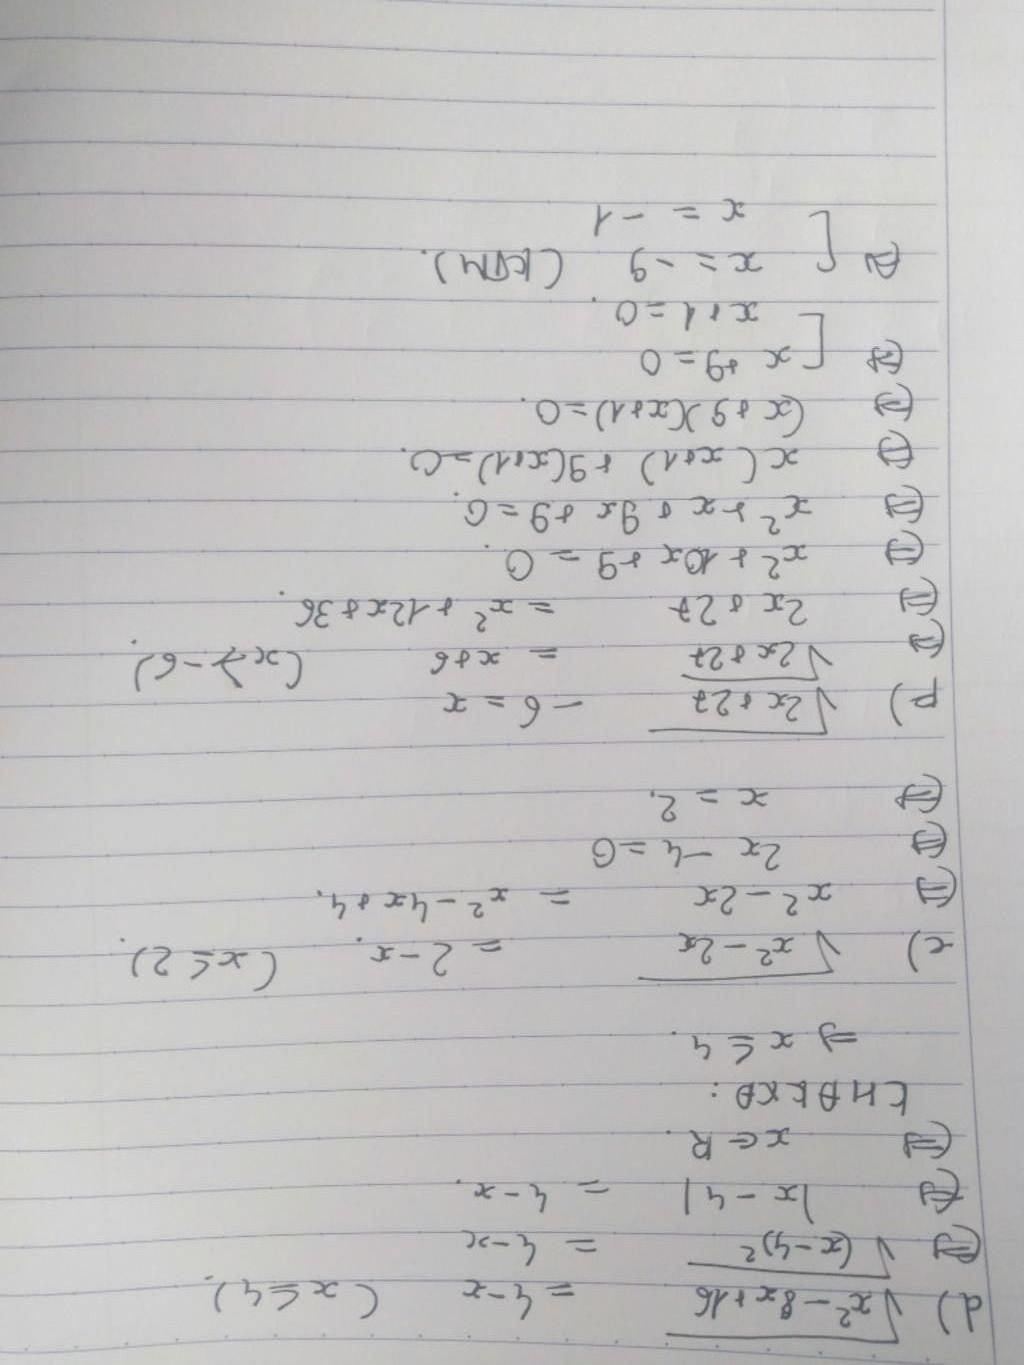 d) √(x² - 8x + 16) = 4 - x (x ≤ 4).
⇔ √(x - 4)² = 4 - x
⇔ |x - 4| = 4 - x.
⇔ x ∈ R.
KHĐKXĐ:
⇒ x ≤ 4.
c) √(x² - 2x) = 2 - x. (x ≤ 2).
⇔ x² - 2x = x² - 4x + 4.
⇔ 2x - 4 = 0
⇔ x = 2.
p) √(2x + 27) - 6 = x
⇔ √(2x + 27) = x + 6 (x ≥ -6).
⇔ 2x + 27 = x² + 12x + 36.
⇔ x² + 10x + 9 = 0.
⇔ x² + x + 9x + 9 = 0.
⇔ x(x + 1) + 9(x + 1) = 0.
⇔ (x + 9)(x + 1) = 0.
⇔ [ x + 9 = 0
x + 1 = 0.
⇔ [ x = -9 (KTM).
x = -1